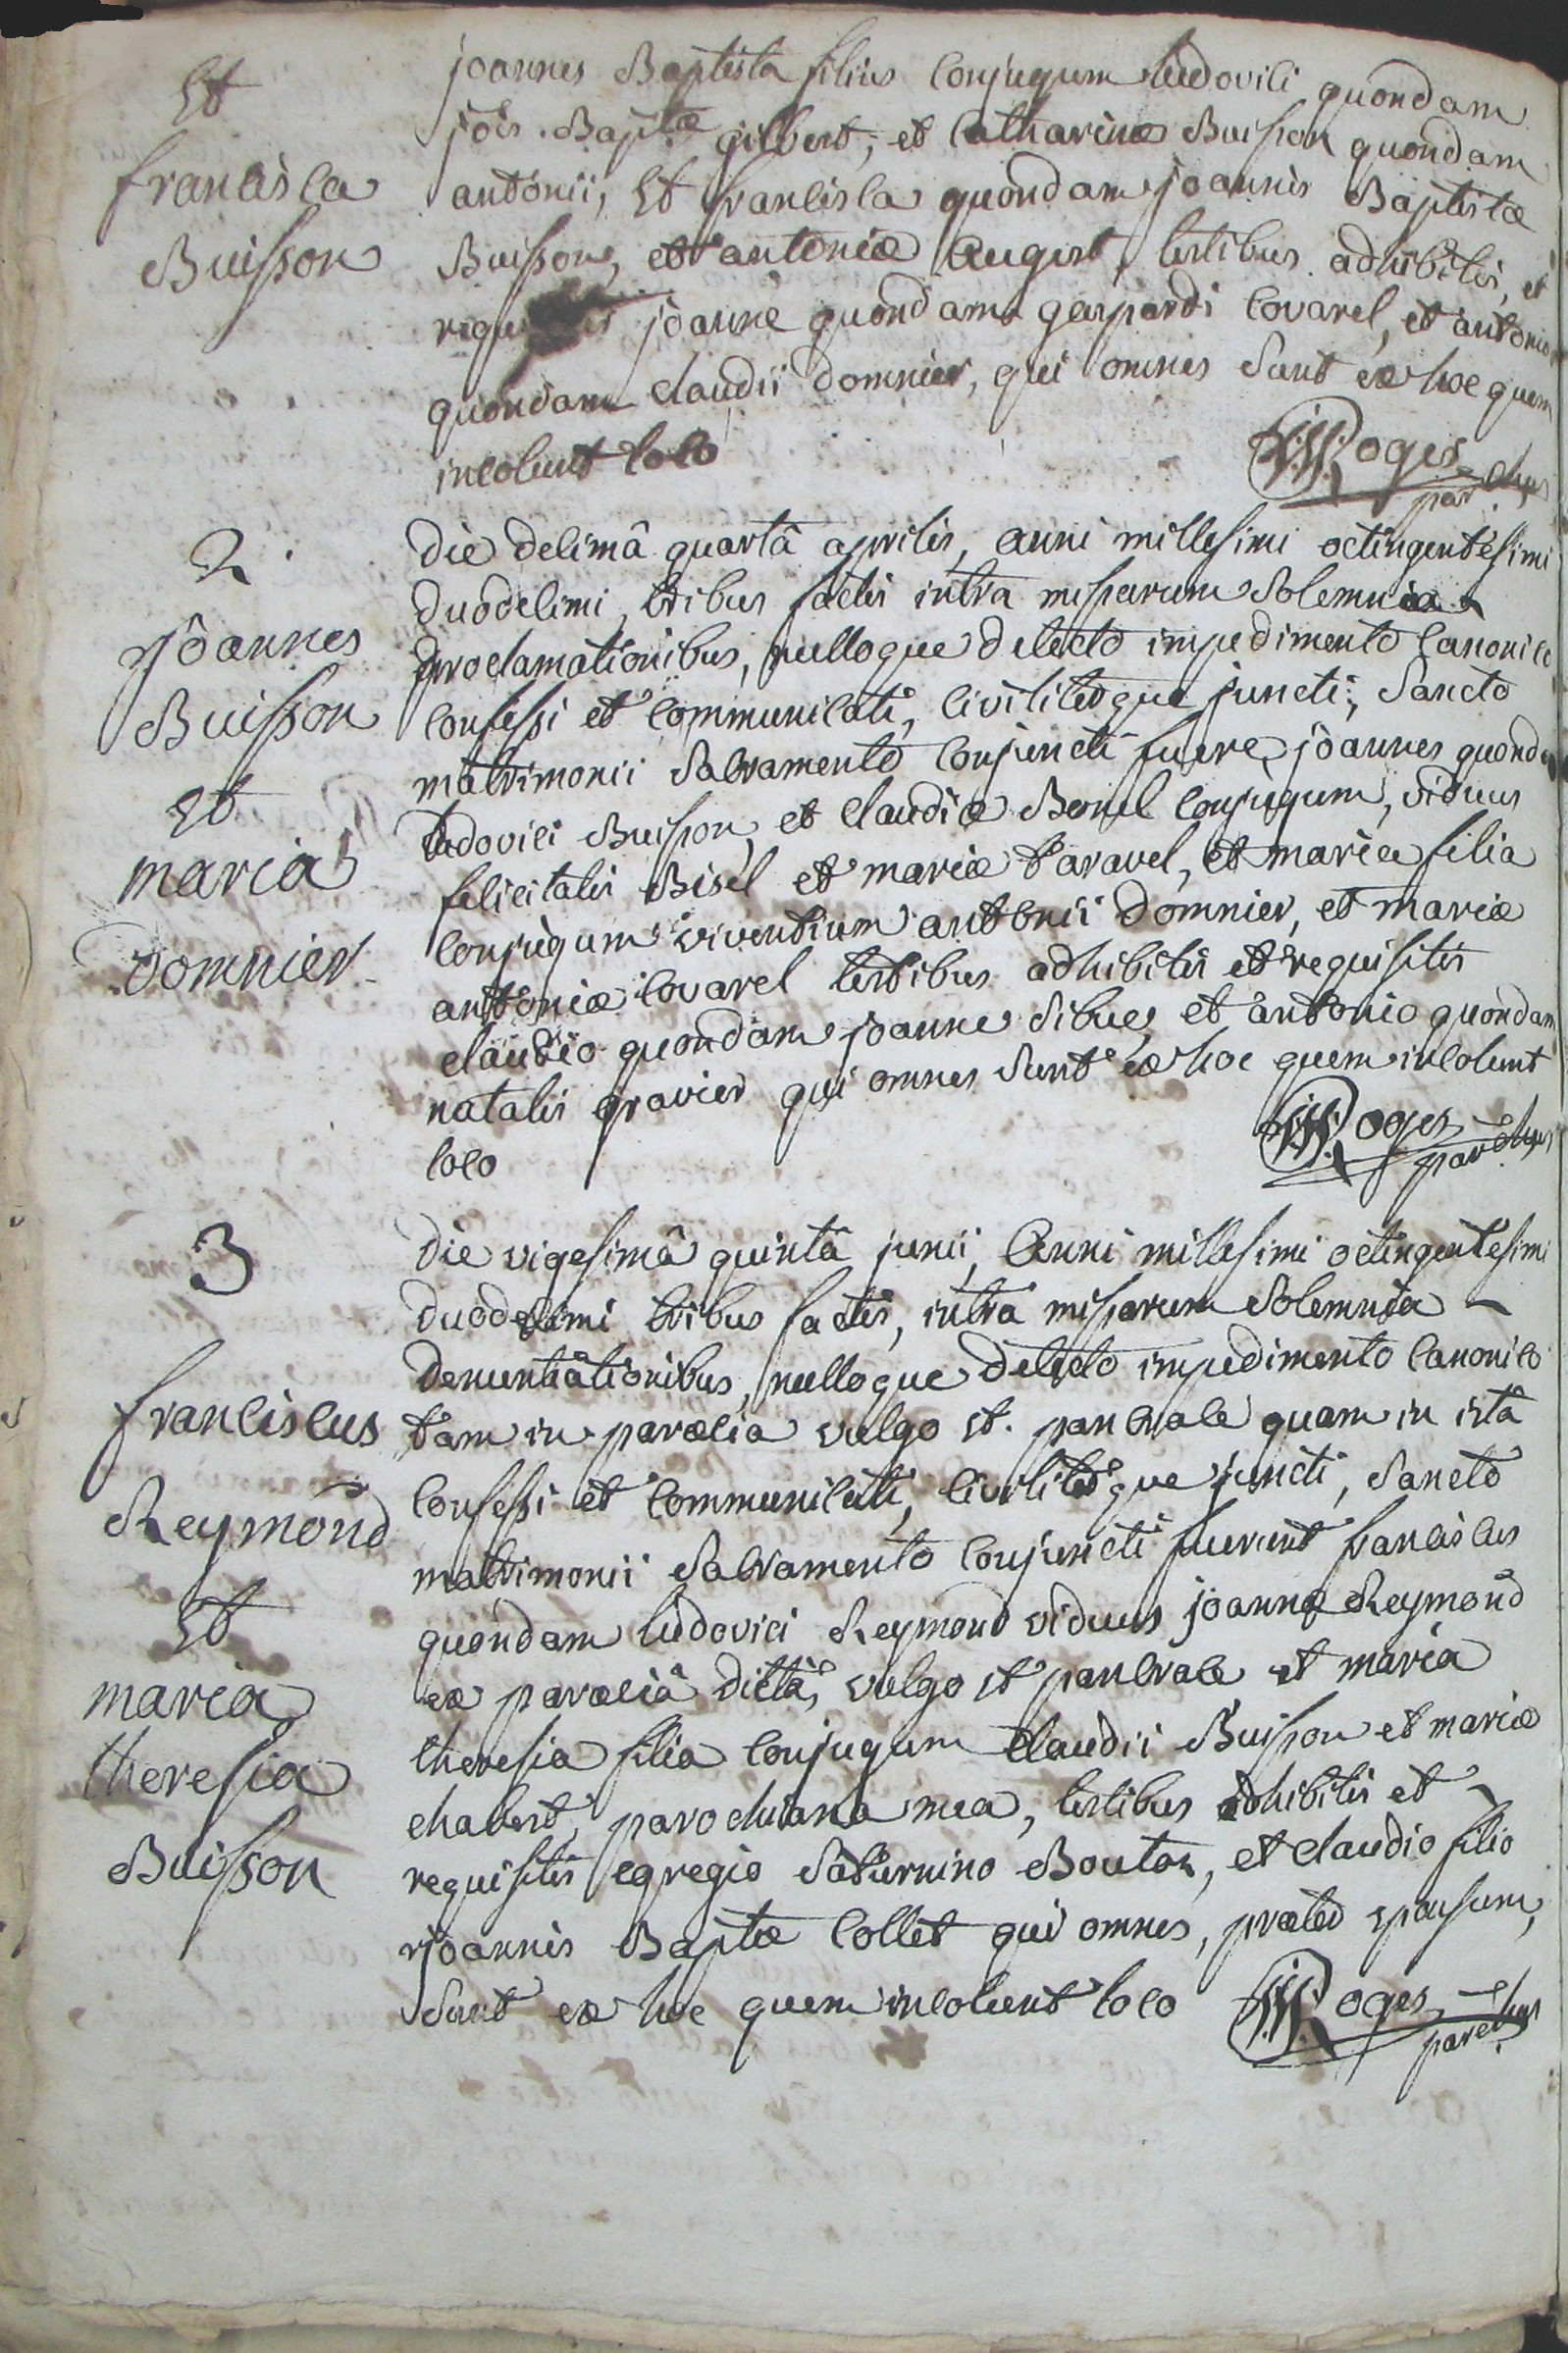 Et
francisca
Buisson
joannes Baptista filius conjugum ludovici quondam
jois. Baptæ gilbert, et catharinæ Buisson quondam
antonii, Et francisca quondam joannis Baptistæ
Buisson, et antoniæ Augert, testibus adhibitis, et
joanne quondam gaspardi covarel, et antonio
quondam claudii domnier, qui omnes sunt ex hoc quem
incolunt loco
Roges
parochus
2.
joannes
Buisson
et
maria
domnier
die decimâ quartâ aprilis, anni millesimi octingentesimi
duodecimi, tribus factis intra missarum solemnia
proclamationibus, nulloque detecto impedimento canonico
confessi et communicati, civiliterque juncti, sancto
matrimonii sacramento conjuncti fuere, joannes quondam
ludovici Buisson, et claudiæ Bonel conjugum, viduus
felicitatis Bisel et mariæ taravel, et maria filia
conjugum viventium antonii domnier, et mariæ
antoniæ covarel testibus adhibitis et requisitis
claudio quondam joanne sibue, et antonio quondam
natalis gravier qui omnes sunt ex hoc quem incolunt
loco
Roges
parochus
3
franciscus
Reymond
Et
maria
theresia
Buisson
die vigesimâ quintâ junii, Anni millesimi octingentesimi
duodecimi tribus factis, intra missarum solemnia
denuntiationibus, nulloque detecto impedimento canonico
tam in paræcia vulgo st. pancrace quam in istâ
confessi et communicati, civiliterque juncti, sancto
matrimonii sacramento conjuncti fuerunt franciscus
quondam ludovici Reymond viduus joannæ Reymond
ex paræciâ dictâ, vulgo st pancrace et maria
theresia filia conjugum claudii Buisson et mariæ
chabert, parochiana mea, testibus adhibitis et
requisitis egregio saturnino Bouton, et claudio filio
joannis Baptæ Collet qui omnes, præter sponsum,
sunt ex hoc quem incolunt loco
Roges
parochus